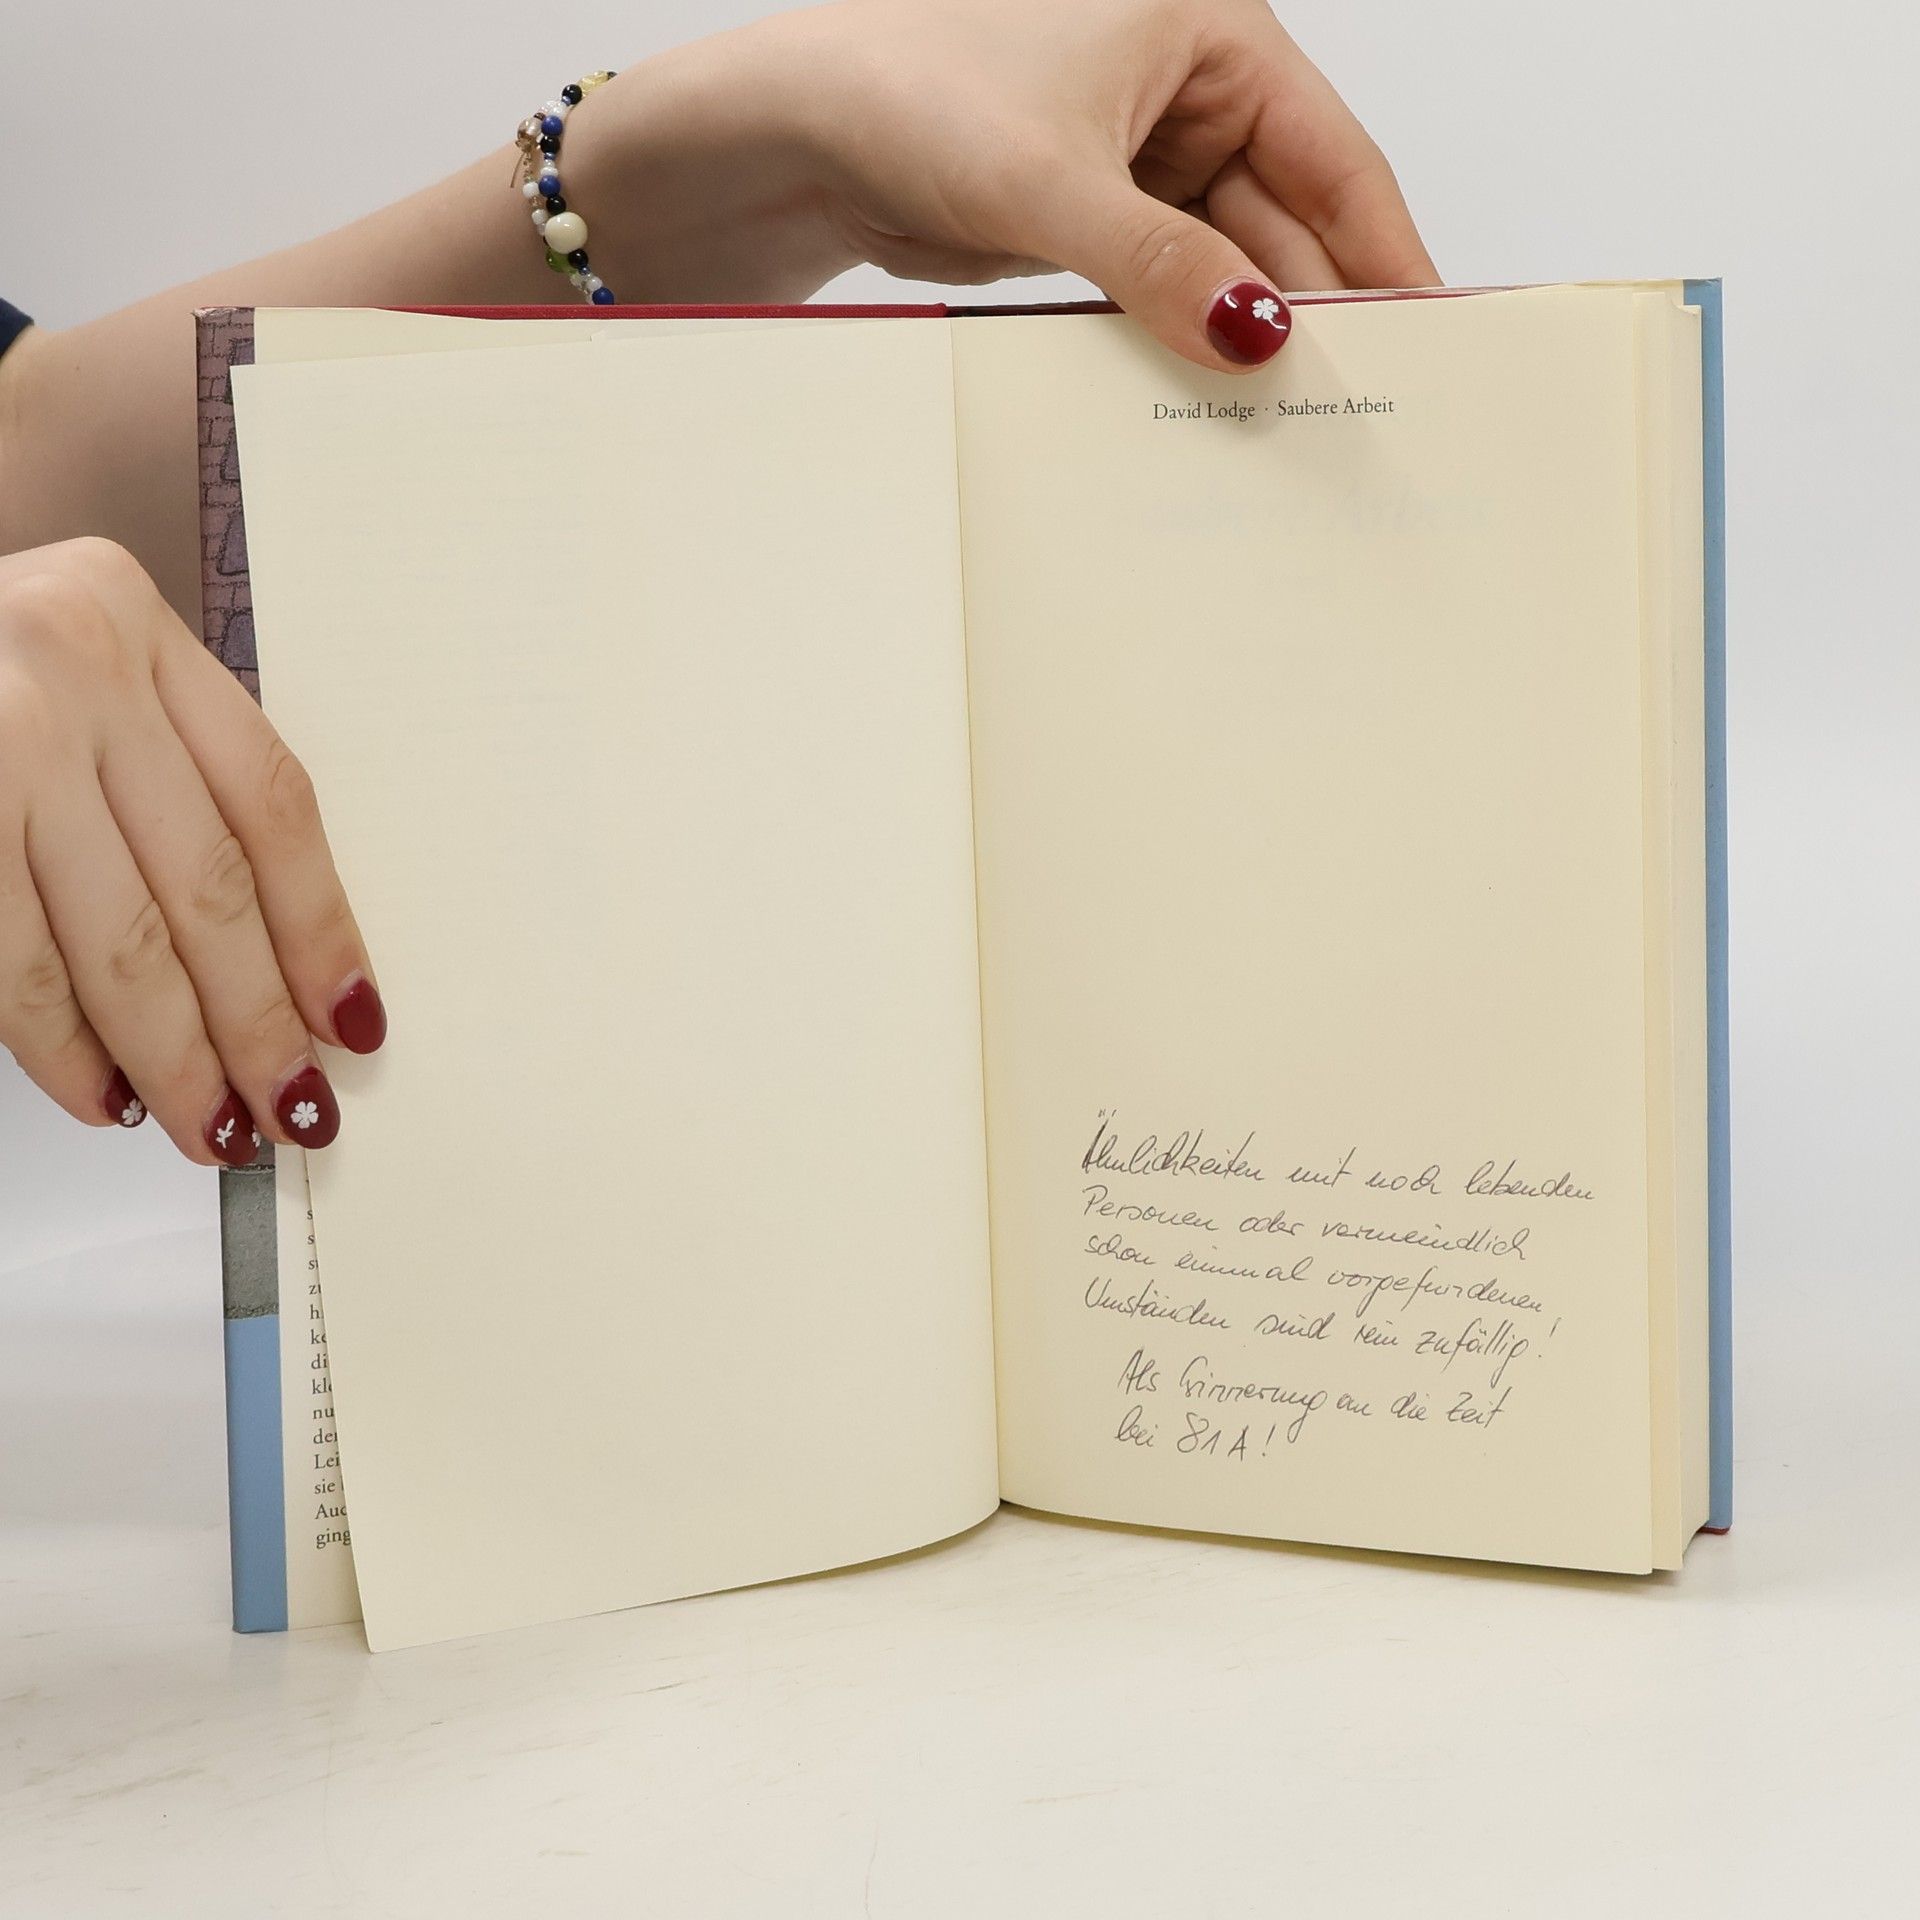 David Lodge · Saubere Arbeit
Ähnlichkeiten mit noch lebenden
Personen oder vermeindlich
schon einmal vorgefundenen
Umständen sind rein zufällig!
Als Erinnerung an die Zeit
bei 81A!
s
s
st
zu
h
ke
di
kle
nu
der
Lei
sie
Auc
ging